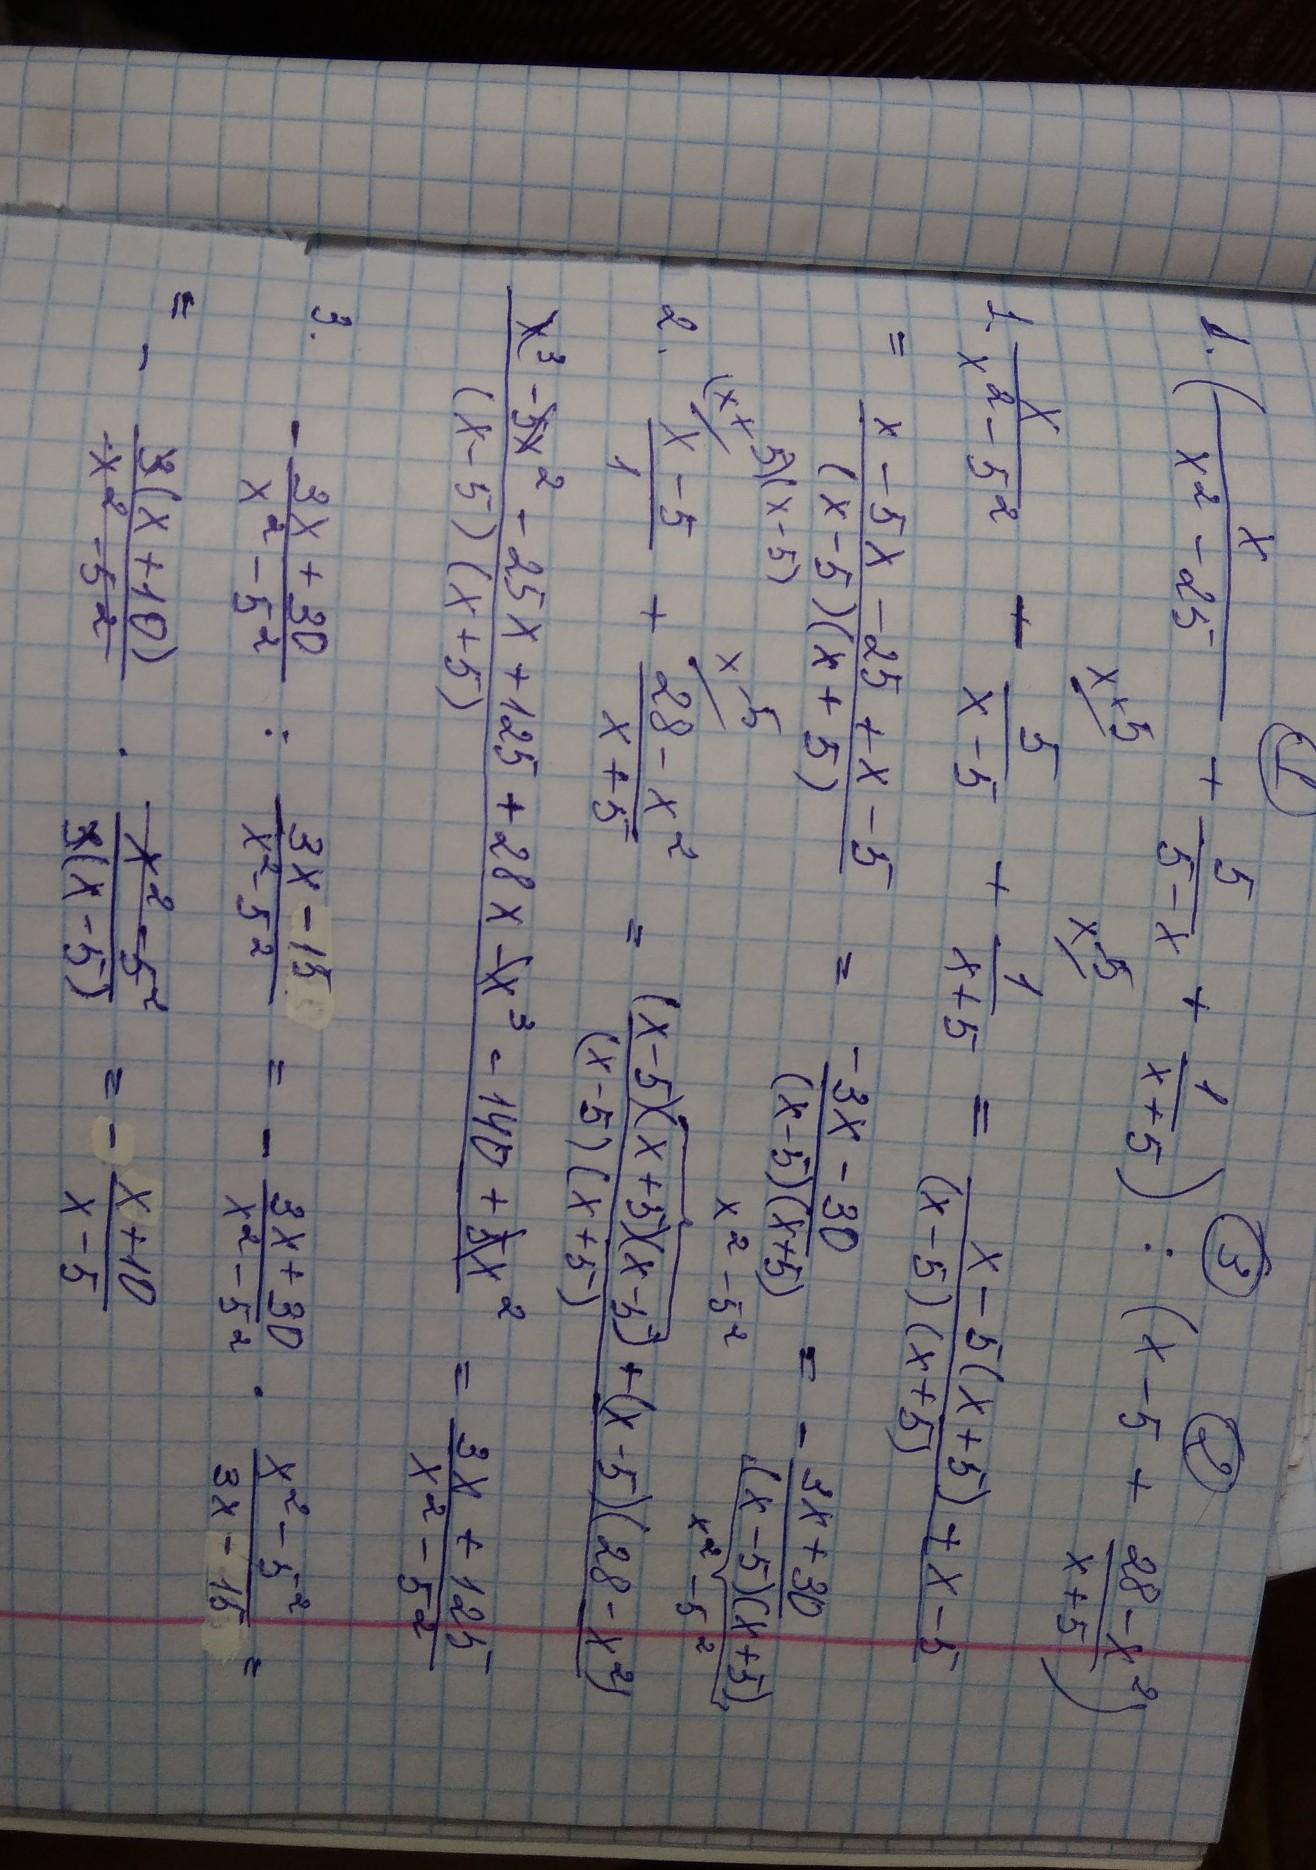 ①   ③   ②
1. (x/(x² - 25) + 5/(5 - x) + 1/(x + 5)) : (x - 5 + (28 - x²)/(x + 5))
x+5   x-5
1. x/(x² - 5²) - 5/(x - 5) + 1/(x + 5) = (x - 5(x + 5) + x - 5)/((x - 5)(x + 5))
= (x - 5x - 25 + x - 5)/((x - 5)(x + 5)) = (-3x - 30)/((x - 5)(x + 5)) = - (3x + 30)/((x - 5)(x + 5))
x² - 5²   x² - 5²
(x+5)(x-5)   x-5
2. (x - 5)/1 + (28 - x²)/(x + 5) = ((x - 5)(x + 5)(x - 5) + (x - 5)(28 - x²))/((x - 5)(x + 5))
(x³ - 5x² - 25x + 125 + 28x - x³ - 140 + 5x²)/((x - 5)(x + 5)) = (3x + 125)/(x² - 5²)
3. - (3x + 30)/(x² - 5²) : (3x - 15)/(x² - 5²) = - (3x + 30)/(x² - 5²) · (x² - 5²)/(3x - 15) =
= - 3(x + 10)/(x² - 5²) · (x² - 5²)/(3(x - 5)) = - (x + 10)/(x - 5)